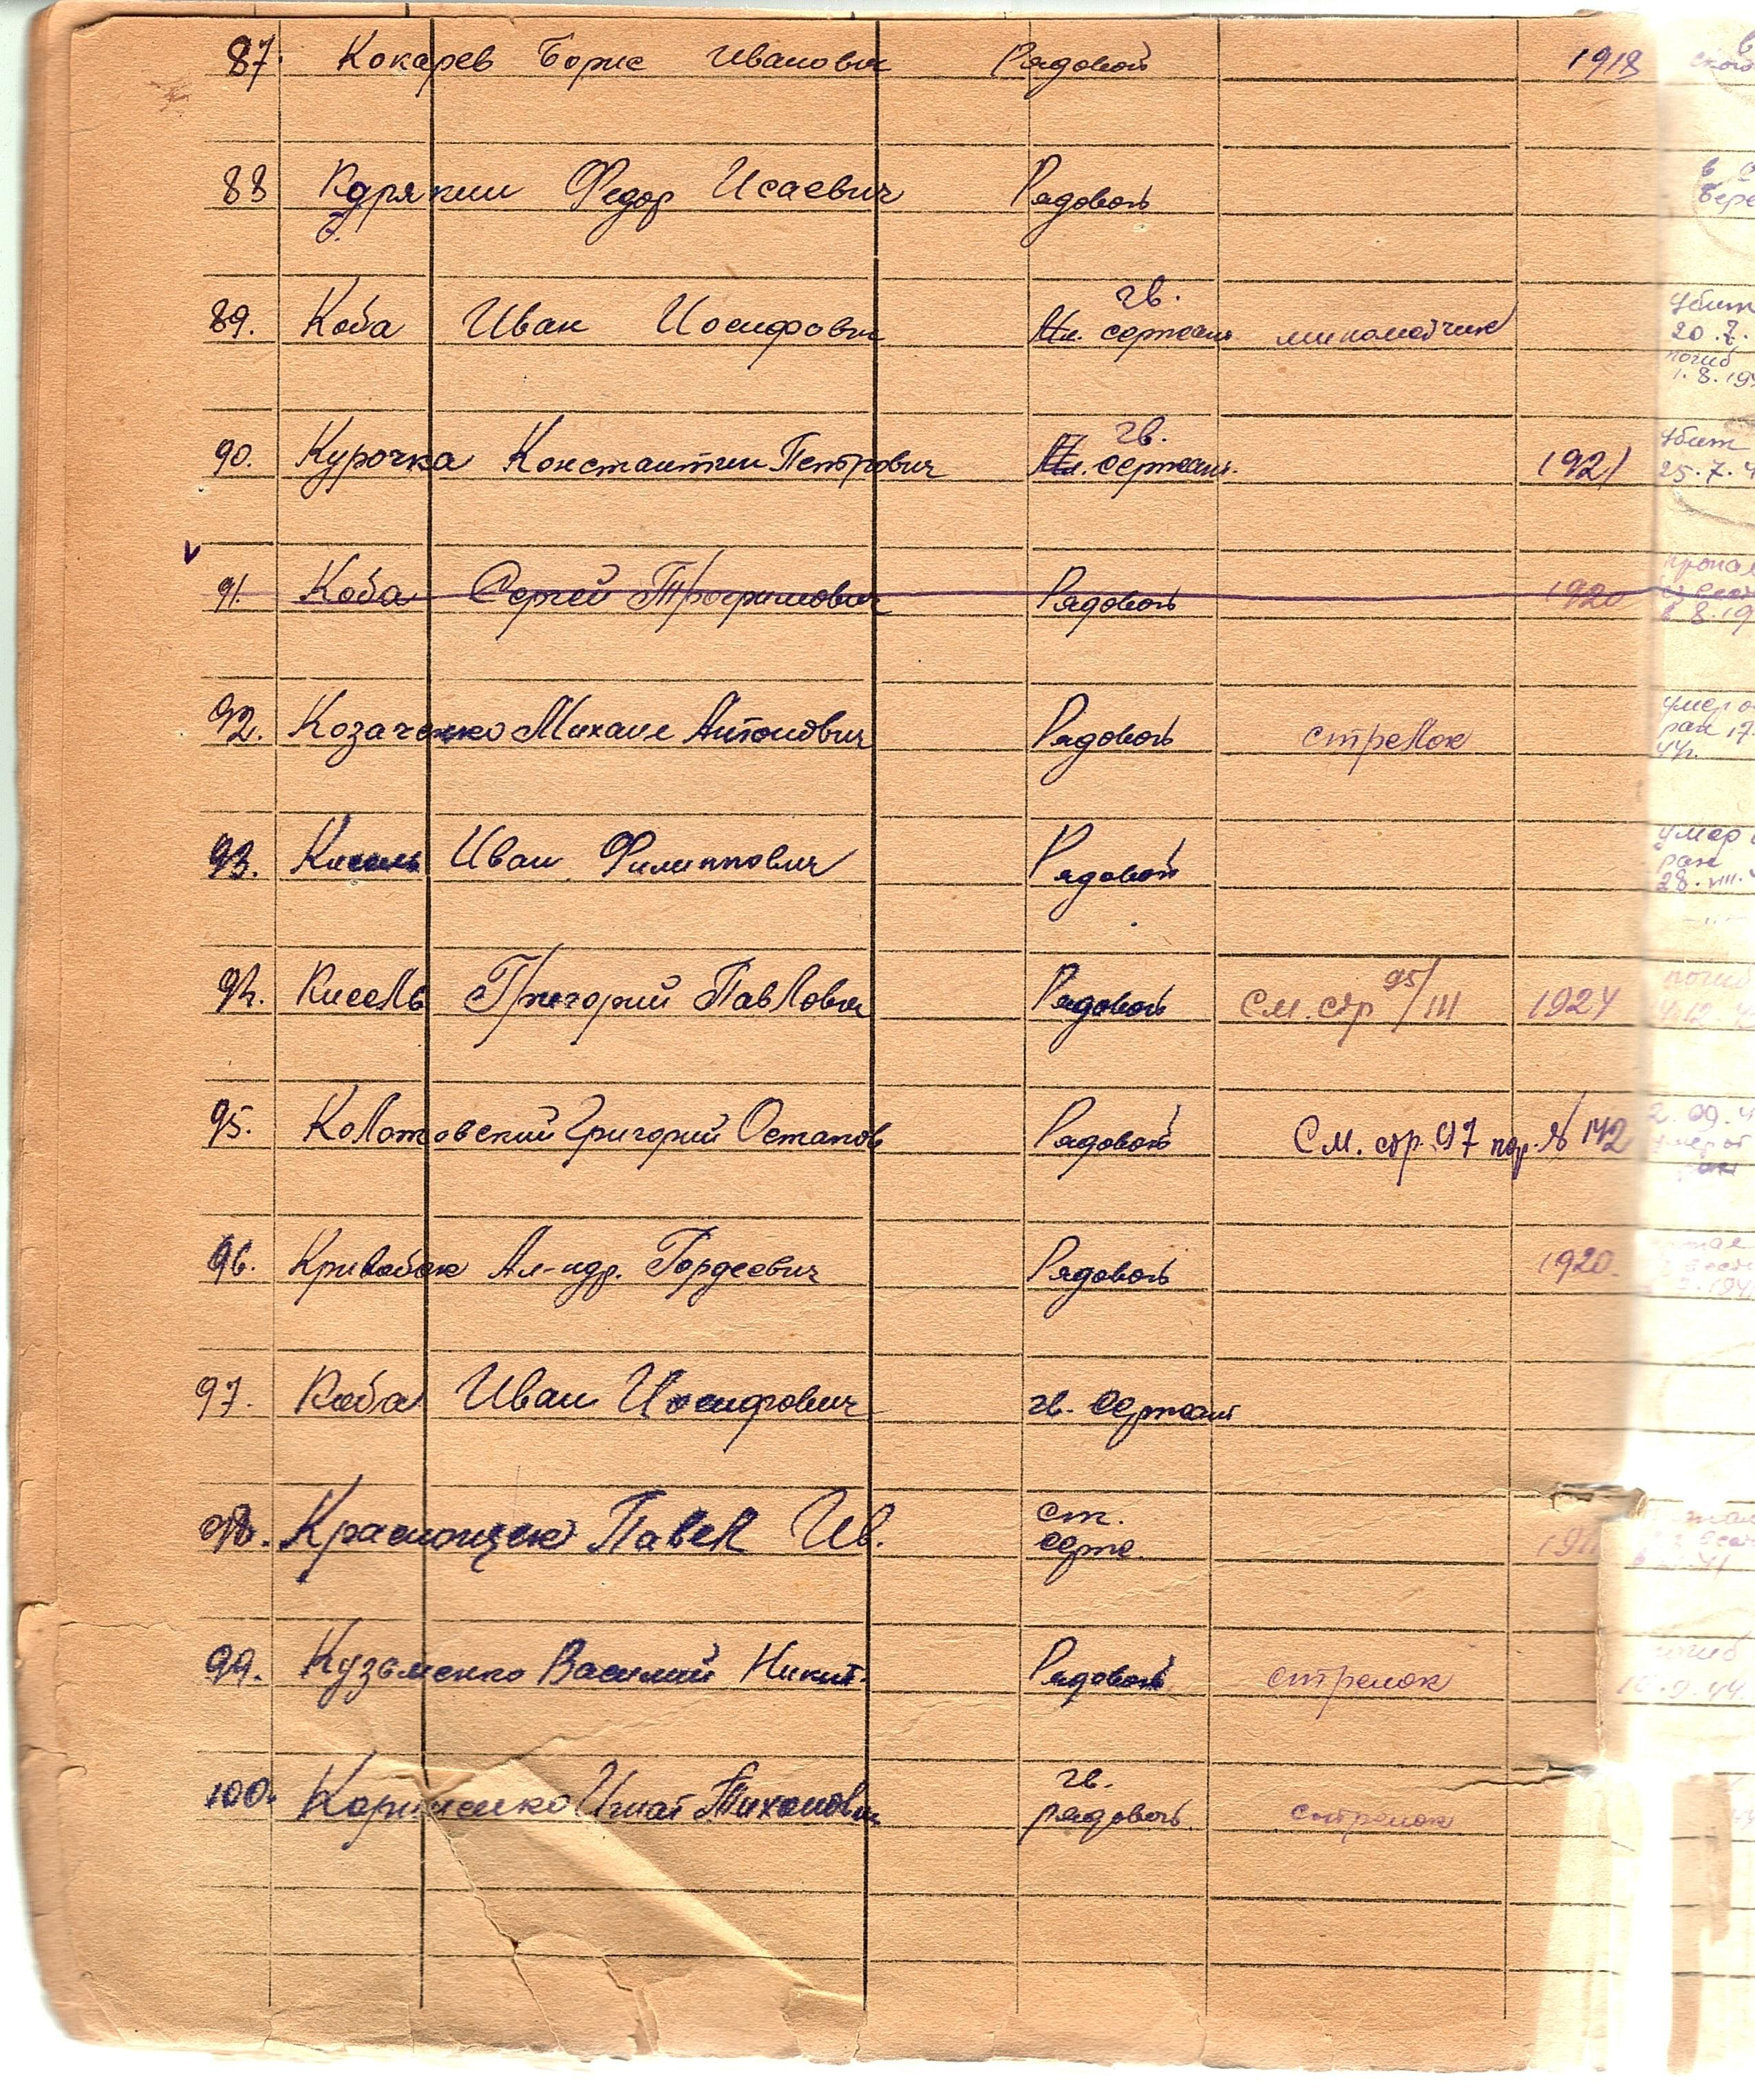 87. Кокарев Борис Иванович Рядовой 1918
88 Карякин Федор Исаевич Рядовой
в
гв.
89. Коба Иван Иосифович Мл. сержант минометчик
убит
20.7.
погиб
1.8.194
гв.
90. Курочка Константин Петрович Мл. сержант. 1921
убит
25.7.4
V
91. Коба Сергей Трофимович Рядовой 1920
пропал
в 8.19
92. Козаченко Михаил Антонович Рядовой стрелок
умер о
ран 17.
44г.
93. Кисель Иван Филиппович Рядовой
умер
ран
28.VIII.
94. Кисель Григорий Павлович Рядовой См. стр 95/III 1924
погиб
95. Колотовский Григорий Остапов Рядовой См. стр. 97 пор. № 142
2.09.4
96. Кривобок Ал-ндр. Гордеевич Рядовой 1920.
97. Коба Иван Иосифович гв. Сержант
98. Краснощек Павел Ив. ст.
серж.
99. Кузьменко Василий Никит. Рядовой стрелок
гв.
100. Игнат Тихонович рядовой. стрелок